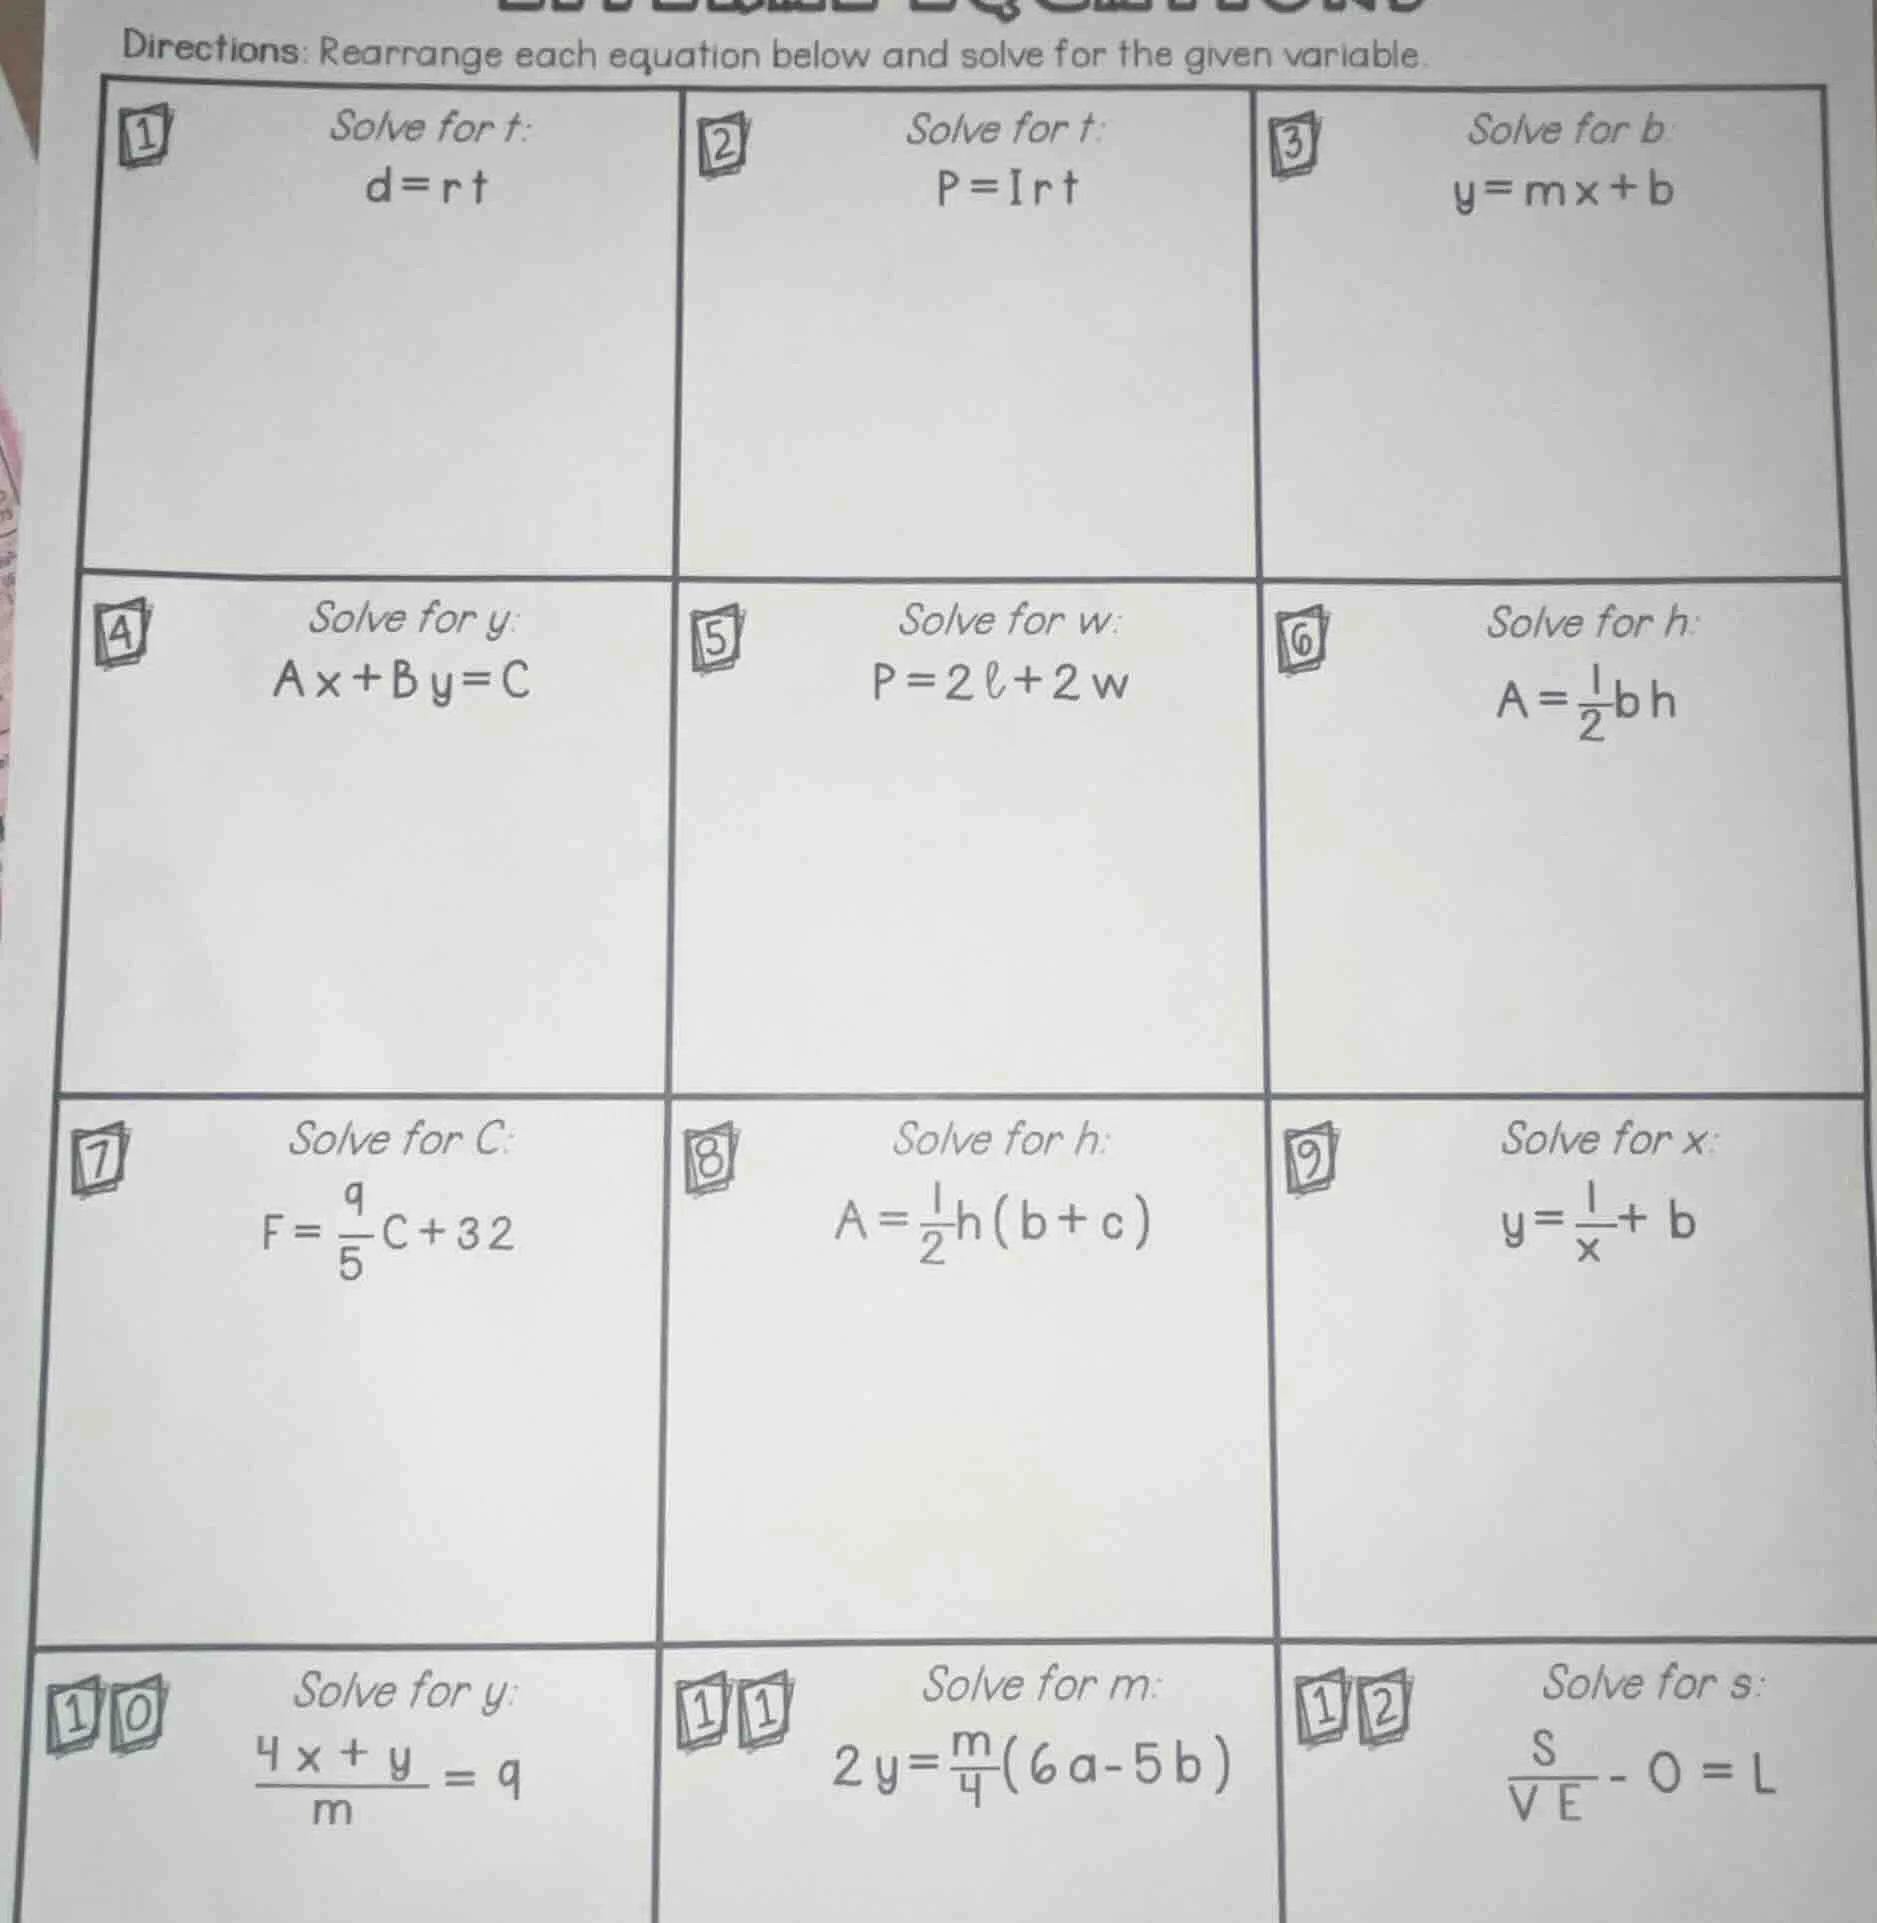 Directions: Rearrange each equation below and solve for the given variable.
1
Solve for t:
d=rt
2
Solve for t:
P=Irt
3
Solve for b:
y=mx+b
4
Solve for y:
Ax+By=C
5
Solve for w:
P=2ℓ+2w
6
Solve for h:
A=1/2bh
7
Solve for C:
F=9/5C+32
8
Solve for h:
A=1/2h(b+c)
9
Solve for x:
y=1/x+ b
10
Solve for y:
4x+y/m = 9
11
Solve for m:
2y=m/4(6a-5b)
12
Solve for s:
S/VE - O = L